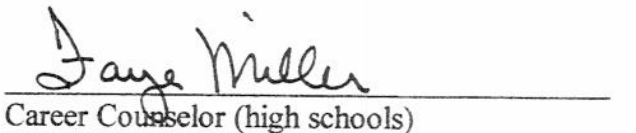 Faye Miller
Career Counselor (high schools)